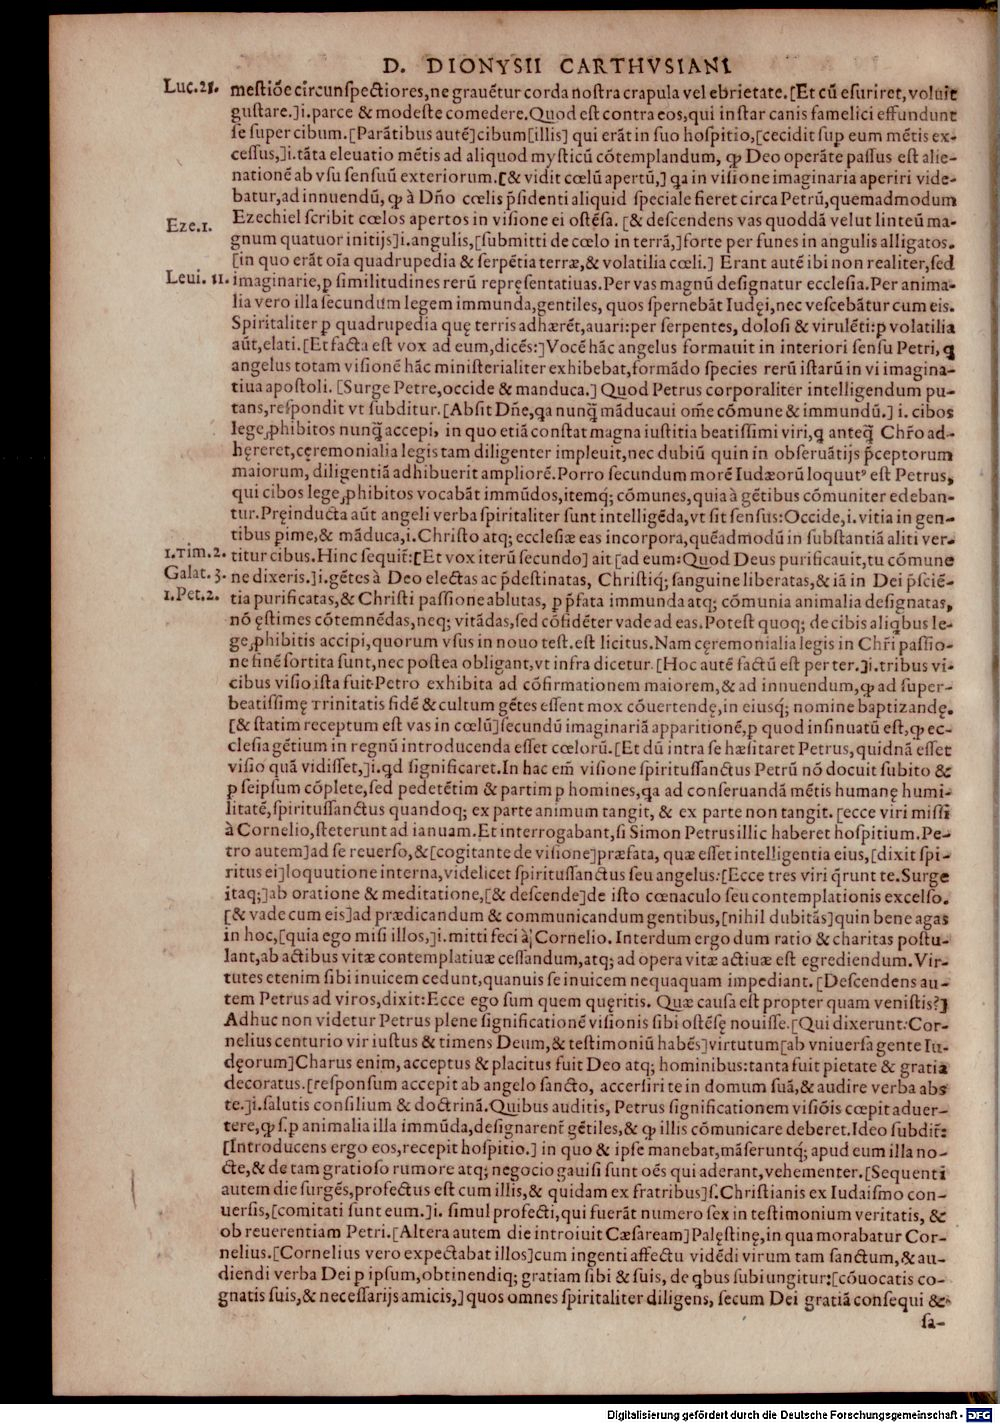 D. DIONYSII CARTHVSIANI
Luc.21. mestiōe circunspectiores,ne grauētur corda nostra crapula vel ebrietate.[Et cū esuriret,voluit
gustare.]i.parce & modeste comedere.Quod est contra eos,qui instar canis famelici effundunt
se super cibum.[Parātibus autē]cibum[illis] qui erāt in suo hospitio,[cecidit sup eum mētis ex-
cessus,]i.tāta eleuatio mētis ad aliquod mysticū cōtemplandum, ꝙ Deo operāte passus est alie-
nationē ab vsu sensuū exteriorum.[& vidit cœlū apertū,] qa in visione imaginaria aperiri vide-
batur,ad innuendū, ꝙ à Dño cœlis p̄sidenti aliquid speciale fieret circa Petrū,quemadmodum
Eze.1. Ezechiel scribit cœlos apertos in visione ei ostēsa. [& descendens vas quoddā velut linteū ma-
gnum quatuor initijs]i.angulis,[submitti de cœlo in terrā,]forte per funes in angulis alligatos.
[in quo erāt oīa quadrupedia & serpētia terræ,& volatilia cœli.] Erant autē ibi non realiter,sed
Leui. 11. imaginarie,ꝑ similitudines rerū repręsentatiuas.Per vas magnū designatur ecclesia.Per anima-
lia vero illa secundum legem immunda,gentiles, quos spernebāt Iudęi,nec vescebātur cum eis.
Spiritaliter ꝑ quadrupedia quę terris adhærēt,auari:per serpentes, dolosi & virulēti:ꝑ volatilia
aūt,elati.[Et facta est vox ad eum,dicēs:]Vocē hāc angelus formauit in interiori sensu Petri, q
angelus totam visionē hāc ministerialiter exhibebat,formādo species rerū istarū in vi imagina-
tiua apostoli. [Surge Petre,occide & manduca.] Quod Petrus corporaliter intelligendum pu-
tans,respondit vt subditur. [Absit Dñe,qa nunq̄ māducaui om̄e cōmune & immundū.] i. cibos
lege ꝓhibitos nunq̄ accepi, in quo etiā constat magna iustitia beatissimi viri,q anteq̄ Chr̄o ad-
hęreret,cęremonialia legis tam diligenter impleuit,nec dubiū quin in obseruātijs p̄ceptorum
maiorum, diligentiā adhibuerit ampliorē.Porro secundum morē Iudæorū loquutꝰ est Petrus,
qui cibos lege ꝓhibitos vocabāt immūdos,itemq; cōmunes,quia à gētibus cōmuniter edeban-
tur.Pręinducta aūt angeli verba spiritaliter sunt intelligēda,vt sit sensus:Occide,i.vitia in gen-
tibus ꝑime,& māduca,i.Christo atq; ecclesiæ eas incorpora,quēadmodū in substantiā aliti ver-
1.Tim.2. titur cibus.Hinc sequit̄:[Et vox iterū secundo] ait [ad eum:Quod Deus purificauit,tu cōmune
Galat. 3. ne dixeris.]i.gētes à Deo electas ac p̄destinatas, Christiq; sanguine liberatas,& iā in Dei p̄sciē-
1.Pet.2. tia purificatas,& Christi passione ablutas, ꝑ p̄fata immunda atq; cōmunia animalia designatas,
nō ęstimes cōtemnēdas,neq; vitādas,sed cōfidēter vade ad eas.Potest quoq; de cibis aliqbus le-
ge ꝓhibitis accipi, quorum vsus in nouo test.est licitus.Nam cęremonialia legis in Chr̄i passio-
ne finē sortita sunt,nec postea obligant,vt infra dicetur.[Hoc autē factū est per ter.]i.tribus vi-
cibus visio ista fuit Petro exhibita ad cōfirmationem maiorem,& ad innuendum,ꝙ ad super-
beatissimę Trinitatis fidē & cultum gētes essent mox cōuertendę,in eiusq; nomine baptizandę.
[& statim receptum est vas in cœlū]secundū imaginariā apparitionē,ꝑ quod insinuatū est,ꝙ ec-
clesia gētium in regnū introducenda esset cœlorū.[Et dū intra se hæsitaret Petrus,quidnā esset
visio quā vidisset,]i.qd significaret.In hac em̄ visione spiritussanctus Petrū nō docuit subito &
ꝑ seipsum cōplete,sed pedetētim & partim ꝑ homines,qa ad conseruandā mētis humanę humi-
litatē,spiritussanctus quandoq; ex parte animum tangit, & ex parte non tangit. [ecce viri missi
à Cornelio,steterunt ad ianuam.Et interrogabant,si Simon Petrus illic haberet hospitium.Pe-
tro autem]ad se reuerso,&[cogitante de visione]præfata, quæ esset intelligentia eius,[dixit spi-
ritus ei]loquutione interna,videlicet spiritussanctus seu angelus:[Ecce tres viri q̄runt te.Surge
itaq;]ab oratione & meditatione,[& descende]de isto cœnaculo seu contemplationis excelso.
[& vade cum eis]ad prædicandum & communicandum gentibus,[nihil dubitās]quin bene agas
in hoc,[quia ego misi illos,]i.mitti feci à Cornelio.Interdum ergo dum ratio & charitas postu-
lant,ab actibus vitæ contemplatiuæ cessandum,atq; ad opera vitæ actiuæ est egrediendum.Vir-
tutes etenim sibi inuicem cedunt,quanuis se inuicem nequaquam impediant.[Descendens au-
tem Petrus ad viros,dixit:Ecce ego sum quem quęritis. Quæ causa est propter quam venistis?]
Adhuc non videtur Petrus plene significationē visionis sibi ostēsę nouisse.[Qui dixerunt:Cor-
nelius centurio vir iustus & timens Deum,& testimoniū habēs]virtutum[ab vniuersa gente Iu-
dęorum]Charus enim, acceptus & placitus fuit Deo atq; hominibus:tanta fuit pietate & gratia
decoratus.[responsum accepit ab angelo sancto, accersiri te in domum suā,& audire verba abs
te.]i.salutis consilium & doctrinā.Quibus auditis, Petrus significationem visiōis cœpit aduer-
tere,ꝙ s.ꝑ animalia illa immūda,designarent̄ gētiles,& ꝙ illis cōmunicare deberet.Ideo subdit̄:
[Introducens ergo eos,recepit hospitio.] in quo & ipse manebat,māseruntq; apud eum illa no-
cte,& de tam gratioso rumore atq; negocio gauisi sunt oēs qui aderant,vehementer.[Sequenti
autem die surgēs,profectus est cum illis,& quidam ex fratribus]s.Christianis ex Iudaismo con-
uersis,[comitati sunt eum.]i. simul profecti,qui fuerāt numero sex in testimonium veritatis, &
ob reuerentiam Petri.[Altera autem die introiuit Cæsaream]Palęstinę,in qua morabatur Cor-
nelius.[Cornelius vero expectabat illos]cum ingenti affectu vidēdi virum tam sanctum,& au-
diendi verba Dei ꝑ ipsum,obtinendiq; gratiam sibi & suis, de qbus subiungitur:[cōuocatis co-
gnatis suis,& necessarijs amicis,] quos omnes spiritaliter diligens, secum Dei gratiā consequi &
sa-
Digitalisierung gefördert durch die Deutsche Forschungsgemeinschaft - DFG